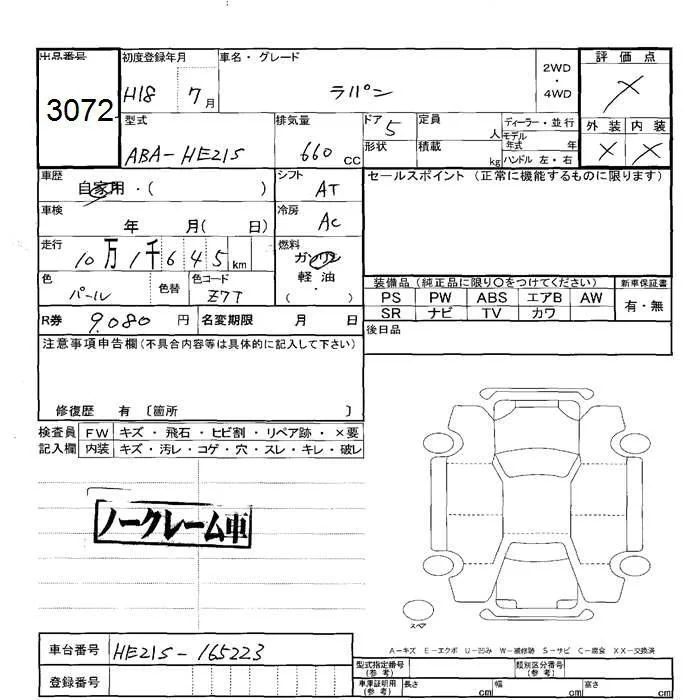 出品番号 3072
初度登録年月 H18 7月
車名・グレード ラパン
2WD・4WD
評価点 ×
外装 内装
× ×
型式 ABA-HE21S
排気量 660 CC
ドア 5
形状
定員 人
積載 kg
ディーラー・並行
モデル年式 年
ハンドル 左・右
車歴 自家用・( )
シフト AT
セールスポイント (正常に機能するものに限ります)
車検 年 月( 日)
冷房 AC
走行 10万1千645km
燃料 ガソリン
軽油
・( )
色 パール
色替
色コード Z7T
装備品 (純正品に限り○をつけてください)
新車保証書
PS PW ABS エアB AW
有・無
SR ナビ TV カワ
R券 9,080円
名変期限 月 日
後日品
注意事項申告欄(不具合内容等は具体的に記入して下さい)
修復歴 有 〔箇所 〕
検査員 FW キズ・飛石・ヒビ割・リペア跡・×要
記入欄 内装 キズ・汚レ・コゲ・穴・スレ・キレ・破レ
ノークレーム車
スペア
A-キズ E-エクボ U-凹み W-補修跡 S-サビ C-腐食 XX-交換済
車台番号 HE21S-165223
型式指定番号(参考)
類別区分番号(参考)
登録番号
車庫証明用(参考) 長さ cm 幅 cm 高さ cm